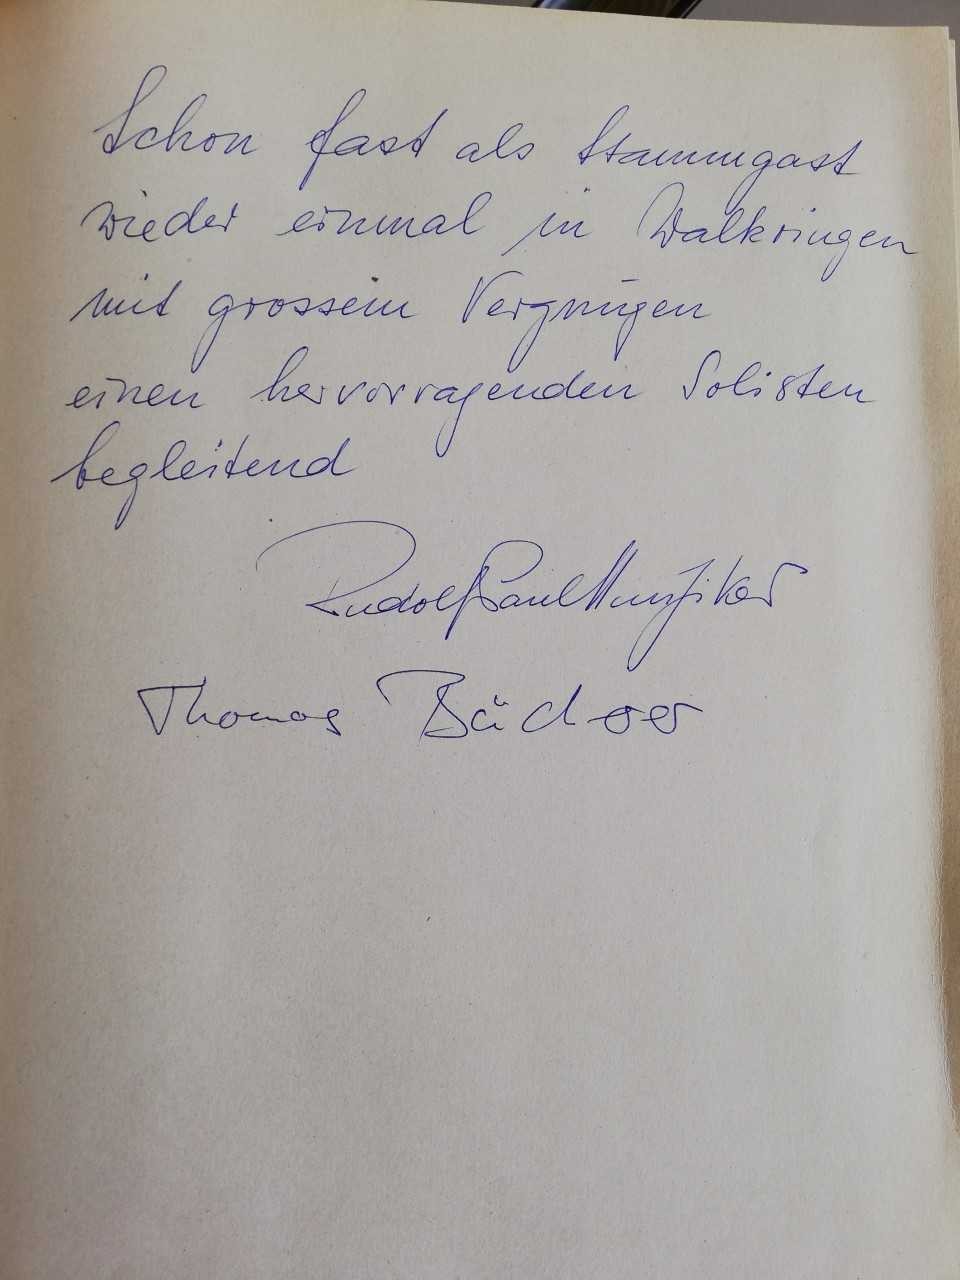 Schon fast als Stammgast
wieder einmal in Walkringen
mit grossem Vergnügen
einen hervorragenden Solisten
begleitend
Rudolf Paul Hunziker
Thomas